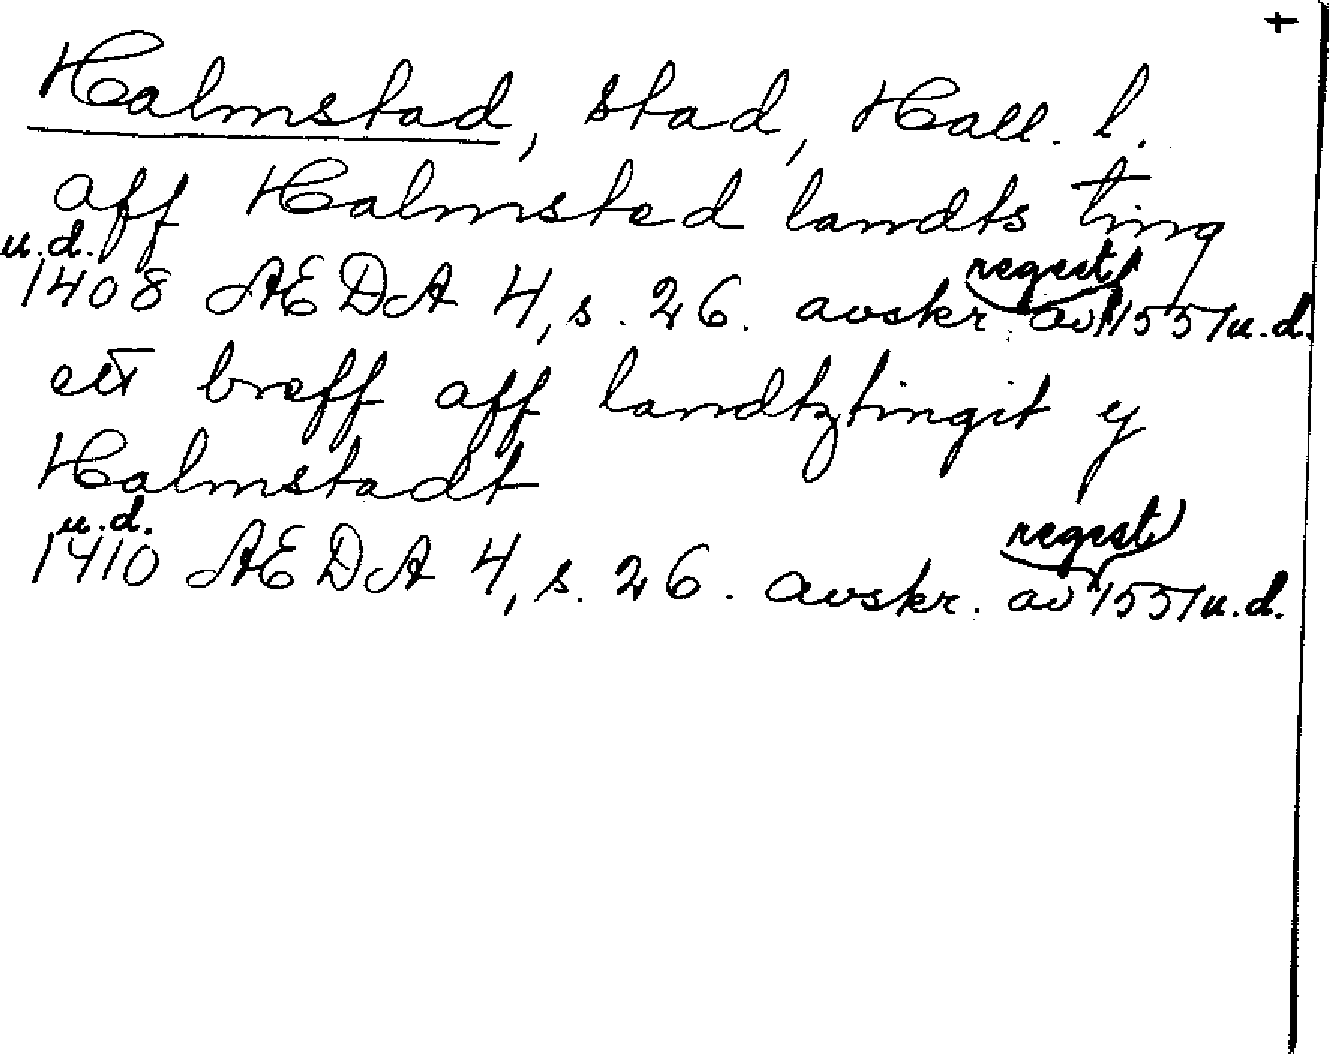 +
Halmstad, stad, Hall. l.
aff Halmsted landts ting
u.d.
1408 AEDA 4, s. 26. avskr. av regest 1551 u.d.
ett breff aff landtztingit y
Halmstadt
u.d.
1410 AEDA 4, s. 26. avskr. av regest 1551 u.d.